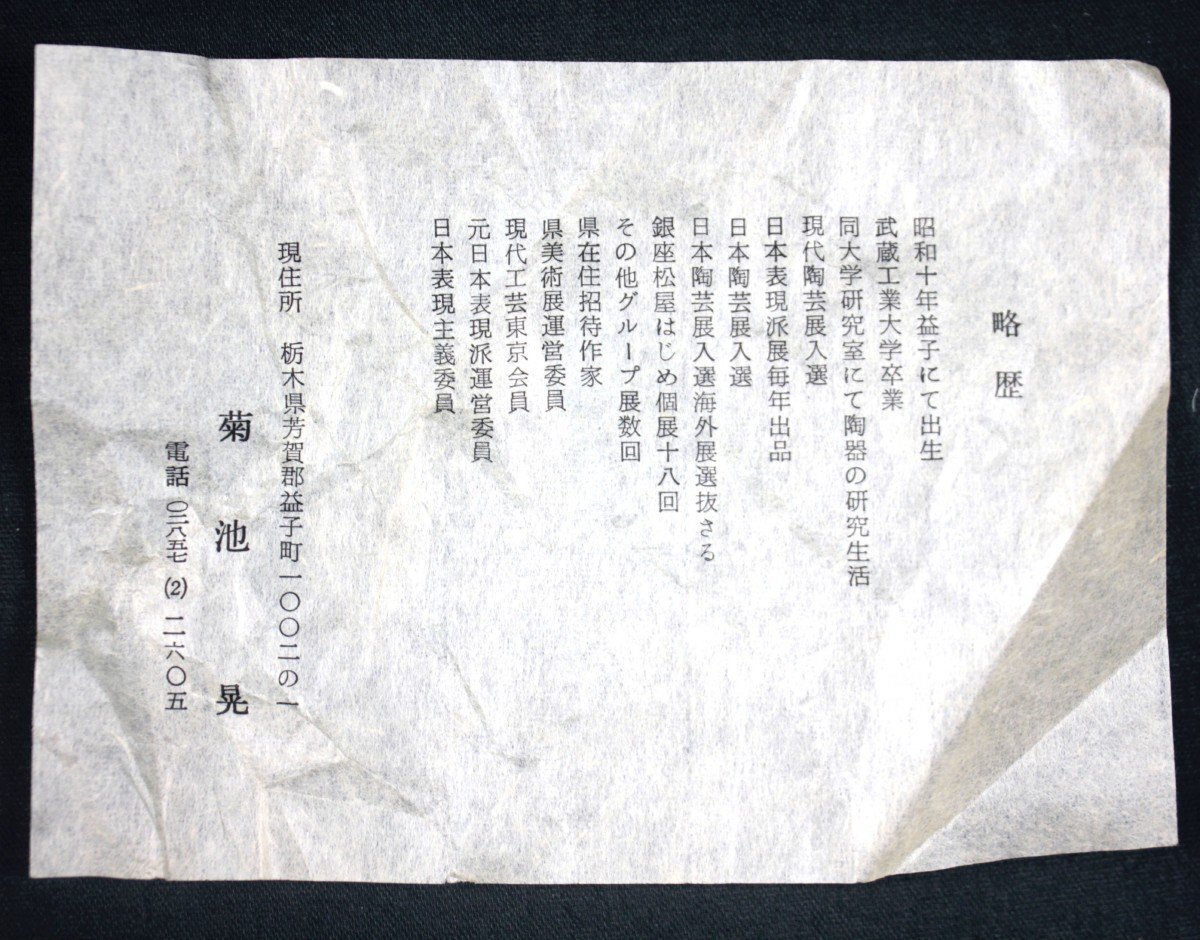 略歴
昭和十年益子にて出生
武蔵工業大学卒業
同大学研究室にて陶器の研究生活
現代陶芸展入選
日本表現派展毎年出品
日本陶芸展入選
日本陶芸展入選海外展選抜さる
銀座松屋はじめ個展十八回
その他グループ展数回
県在住招待作家
県美術展運営委員
現代工芸東京会員
元日本表現派運営委員
日本表現主義委員
現住所 栃木県芳賀郡益子町一〇〇二の一
菊池晃
電話 〇二八五七 (2) 二六〇五